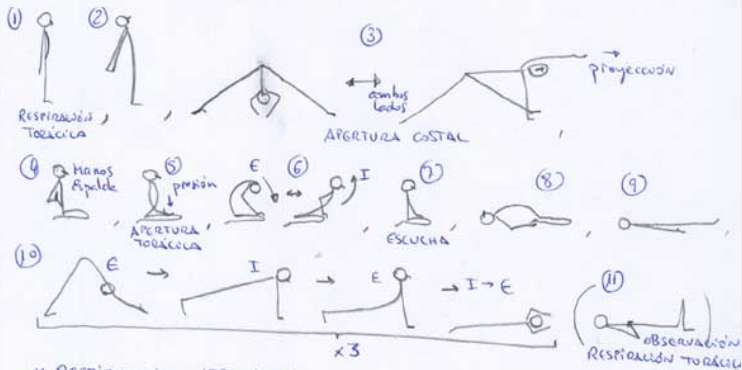 ① ② ③
RESPIRACIÓN TORÁCICA, , , ambos lados → proyección
APERTURA COSTAL ,
④ Manos Espalda , ⑤ presión APERTURA TORÁCICA , E ⑥ I , ⑦ ESCUCHA , ⑧ , ⑨
⑩ E → I → E → I → E
x3
(⑪ OBSERVACIÓN RESPIRACIÓN TORÁCICA